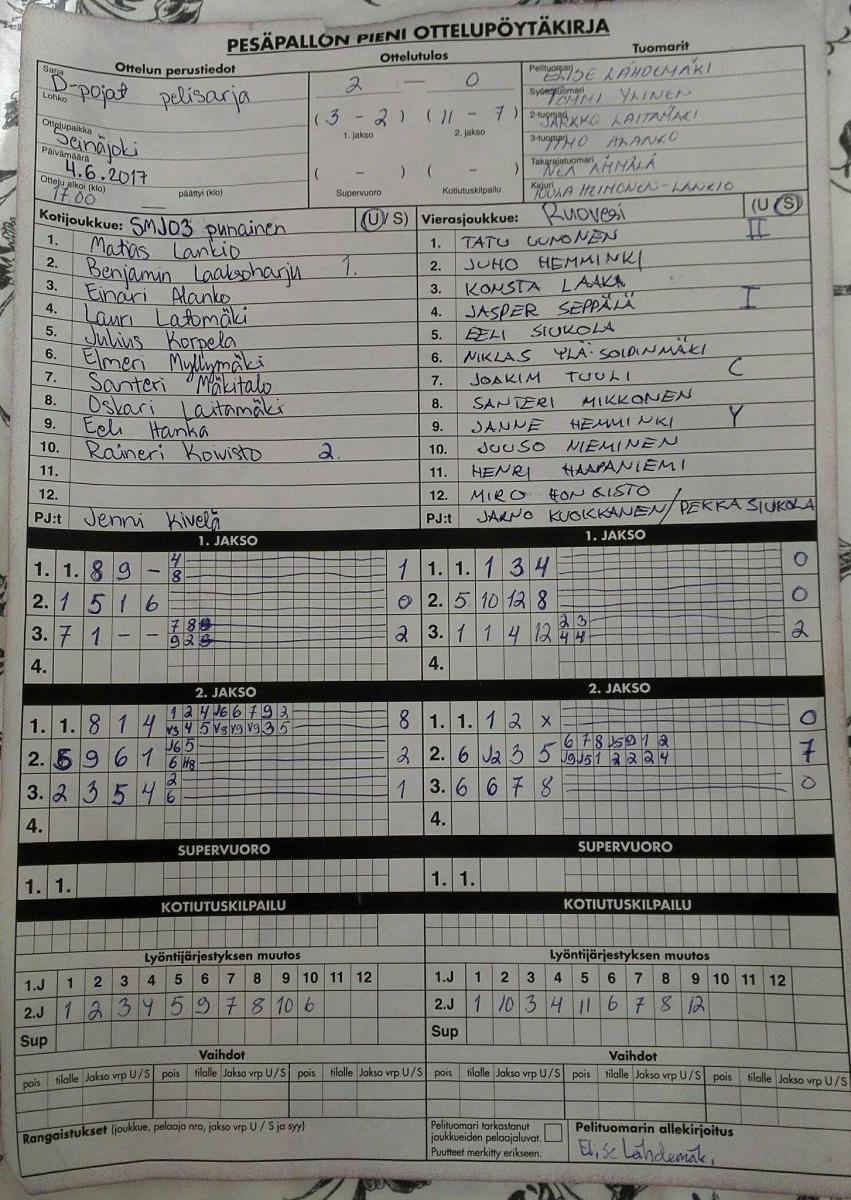 PESÄPALLON PIENI OTTELUPÖYTÄKIRJA
Ottelun perustiedot
Sarja
D-pojat pelisarja
Lohko
Ottelupaikka
Seinäjoki
Päivämäärä
4.6.2017
Ottelu alkoi (klo) päättyi (klo)
17.00
Ottelutulos
2 — 0
(3 - 2) (11 - 7)
1. jakso 2. jakso
( - ) ( - )
Supervuoro Kotiutuskilpailu
Tuomarit
Pelituomari ELISE LÄHDEMÄKI
Syöttötuomari TOMMI YLINEN
2-tuomari JARKKO LAITAMÄKI
3-tuomari TIMO ALANKO
Takarajatuomari NEA ÄMMÄLÄ
Kirjuri TUUKA HEIMONEN-LANKIO
Kotijoukkue: SMJ03 punainen (U/S)
1. Matias Lankio
2. Benjamin Laaksoharju 1.
3. Einari Alanko
4. Lauri Latomäki
5. Julius Korpela
6. Elmeri Myllymäki
7. Santeri Mäkitalo
8. Oskari Laitamäki
9. Eeli Hanka
10. Raineri Koivisto 2.
11.
12.
PJ:t Jenni Kivelä
Vierasjoukkue: Ruovesi (U/S)
1. TATU UUNONEN II
2. JUHO HEMMINKI
3. KONSTA LAAKA
4. JASPER SEPPÄLÄ I
5. EELI SIUKOLA
6. NIKLAS YLÄ-SOIDINMÄKI
7. JOAKIM TUULI C
8. SANTERI MIKKONEN
9. JANNE HEMMINKI Y
10. JUUSO NIEMINEN
11. HENRI HAAPANIEMI
12. MIRO HONGISTO
PJ:t JARNO KUOKKANEN/PEKKA SIUKOLA
1. JAKSO
1. 1. 8 9 - 4 1
8
2. 1 5 1 6 0
3. 7 1 - - 7 8 2
9 2
4.
1. JAKSO
1. 1. 1 3 4 0
2. 5 10 12 8 0
3. 1 1 4 12 2 3 2
4 4
4.
2. JAKSO
1. 1. 8 1 4 1 2 4 J6 6 7 9 2 8
V3 4 5 V8 V9 V9 3 5
2. 6 9 6 1 J6 5 2
6 H8
3. 2 3 5 4 2 1
6
4.
2. JAKSO
1. 1. 1 2 x 0
2. 6 J2 3 5 6 7 8 J5 9 1 2 7
J9 J5 1 2 2 2 4
3. 6 6 7 8 0
4.
SUPERVUORO
1. 1.
SUPERVUORO
1. 1.
KOTIUTUSKILPAILU
KOTIUTUSKILPAILU
Lyöntijärjestyksen muutos
1.J 1 2 3 4 5 6 7 8 9 10 11 12
2.J 1 2 3 4 5 9 7 8 10 6
Sup
Lyöntijärjestyksen muutos
1.J 1 2 3 4 5 6 7 8 9 10 11 12
2.J 1 10 3 4 11 6 7 8 12
Sup
Vaihdot
pois tilalle Jakso vrp U/S pois tilalle Jakso vrp U/S pois tilalle Jakso vrp U/S
Vaihdot
pois tilalle Jakso vrp U/S pois tilalle Jakso vrp U/S pois tilalle Jakso vrp U/S
Rangaistukset (joukkue, pelaaja nro, jakso vrp U / S ja syy)
Pelituomari tarkastanut
joukkueiden pelaajaluvat.
Puutteet merkitty erikseen.
Pelituomarin allekirjoitus
Elise Lähdemäki